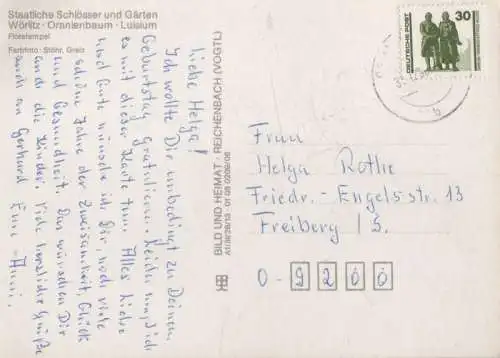 Staatliche Schlösser und Gärten
Wörlitz · Oranienbaum · Luisium
Floratempel
Farbfoto: Stöhr, Greiz
Liebe Helga!
Ich wollte Dir unbedingt zu Deinem
Geburtstag Gratulieren. Leider nun, daß
es mit dieser Karte tun. Alles Liebe
und Gute wünsche ich Dir, noch viele
schöne Jahre der Zweisamkeit, Glück
und Gesundheit. Das wünschen Dir
auch die Kinder. Viele herzliche Grüße
auch an Gerhard Eure
BILD UND HEIMAT · REICHENBACH (VOGTL)
DEUTSCHE POST
30
Frau
Helga Rothe
Friedr.-Engels-str. 13
Freiberg / S.
O-9200